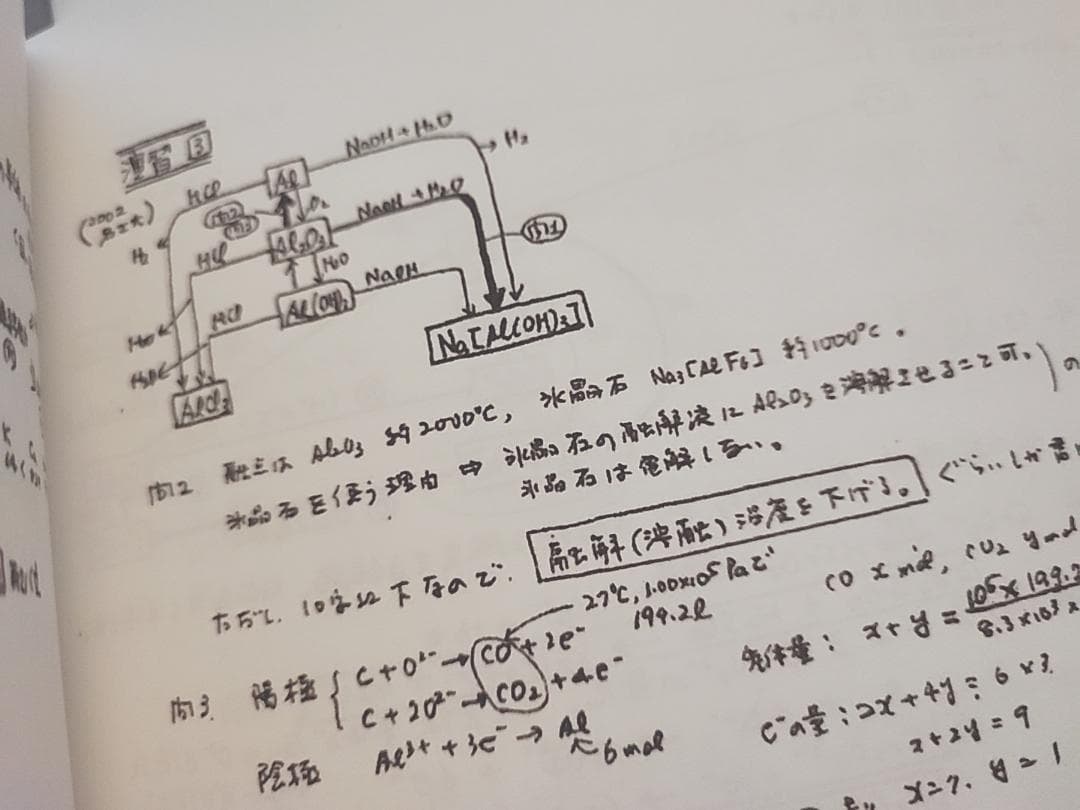 演習 3
(2002 名工大)
NaOH + H2O
H2
HCl
Al
問2
問3
O2
NaOH + H2O
H2
HCl
Al2O3
問1
H2O
NaOH
HCl
Al(OH)3
H2O
H2O
Na[Al(OH)3]
AlCl3
問2 融点は Al2O3 約2000℃, 氷晶石 Na3[AlF6] 約1000℃.
氷晶石を使う理由 ⇒ 氷晶石の融解液に Al2O3 を溶解させること可.)の
氷晶石は電解しない.
ただし、10字以下なので. 融解(溶融)温度を下げる。 ぐらいしか書け
27℃, 1.00×10^5 Paで
199.2l
CO x mol, CO2 y mol
問3. 陽極 { C + O2- → CO + 2e-
C + 2O2- → CO2 + 4e-
気体量 : x + y = 10^5 × 199.2 / 8.3×10^3 ×
陰極 Al3+ + 3e- → Al
6 mol
e-の量 : 2x + 4y = 6 × 3.
x + 2y = 9
x = 7. y = 1